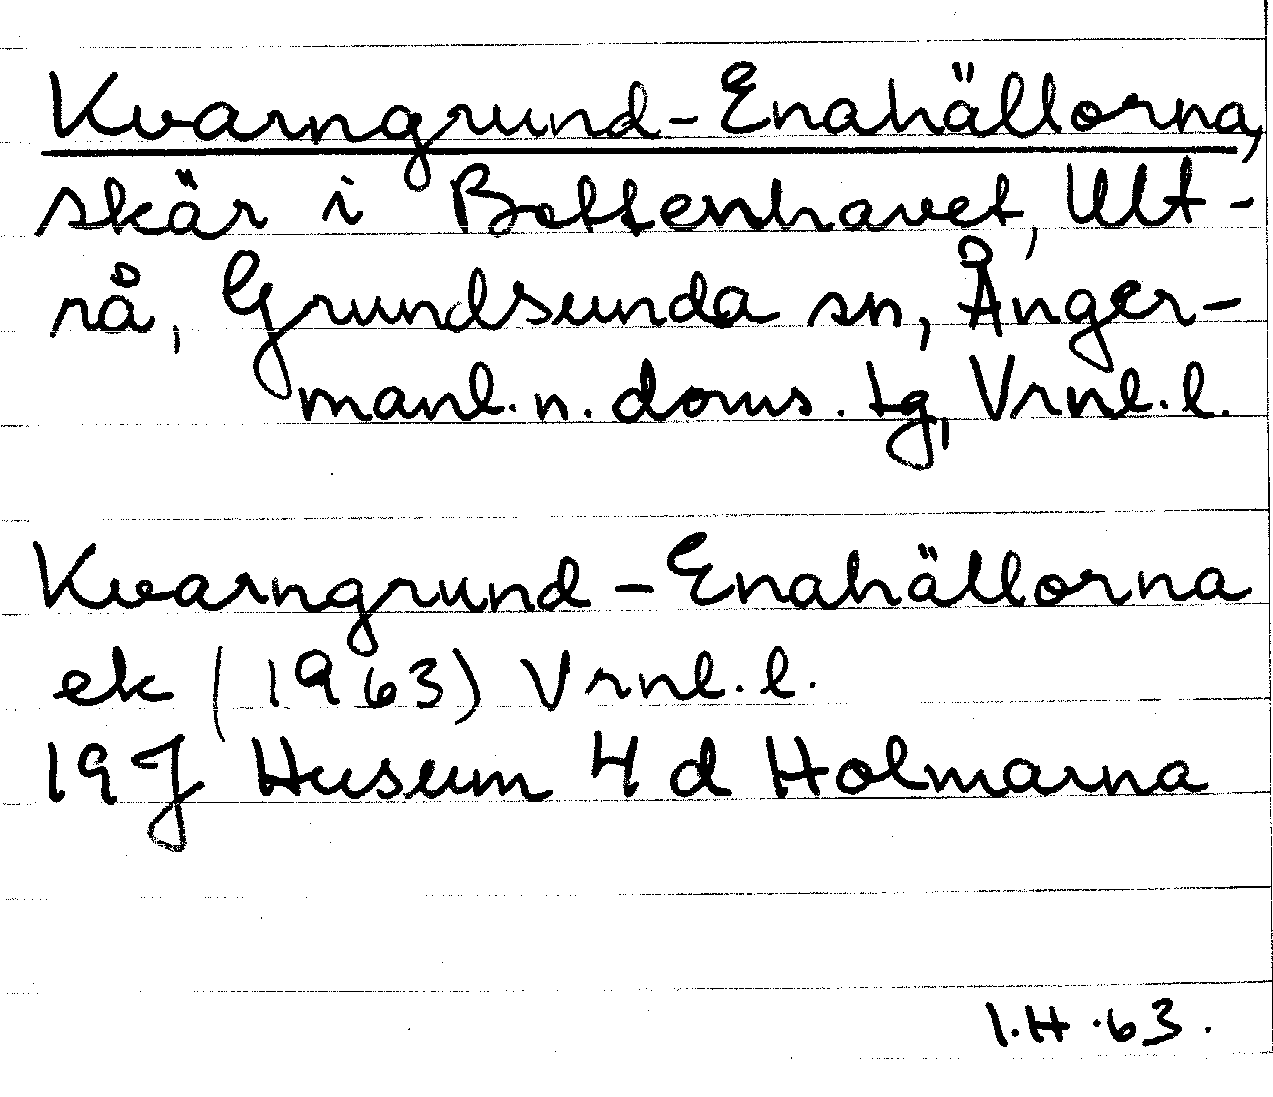 Kvarngrund-Enahällorna,
skär i Bottenhavet, Ult-
rå, Grundsunda sn, Ånger-
manl. n. doms. tg, Vrnl. l.
Kvarngrund - Enahällorna
ek (1963) Vrnl. l.
19 J Husum 4 d Holmarna
I.H. 63.